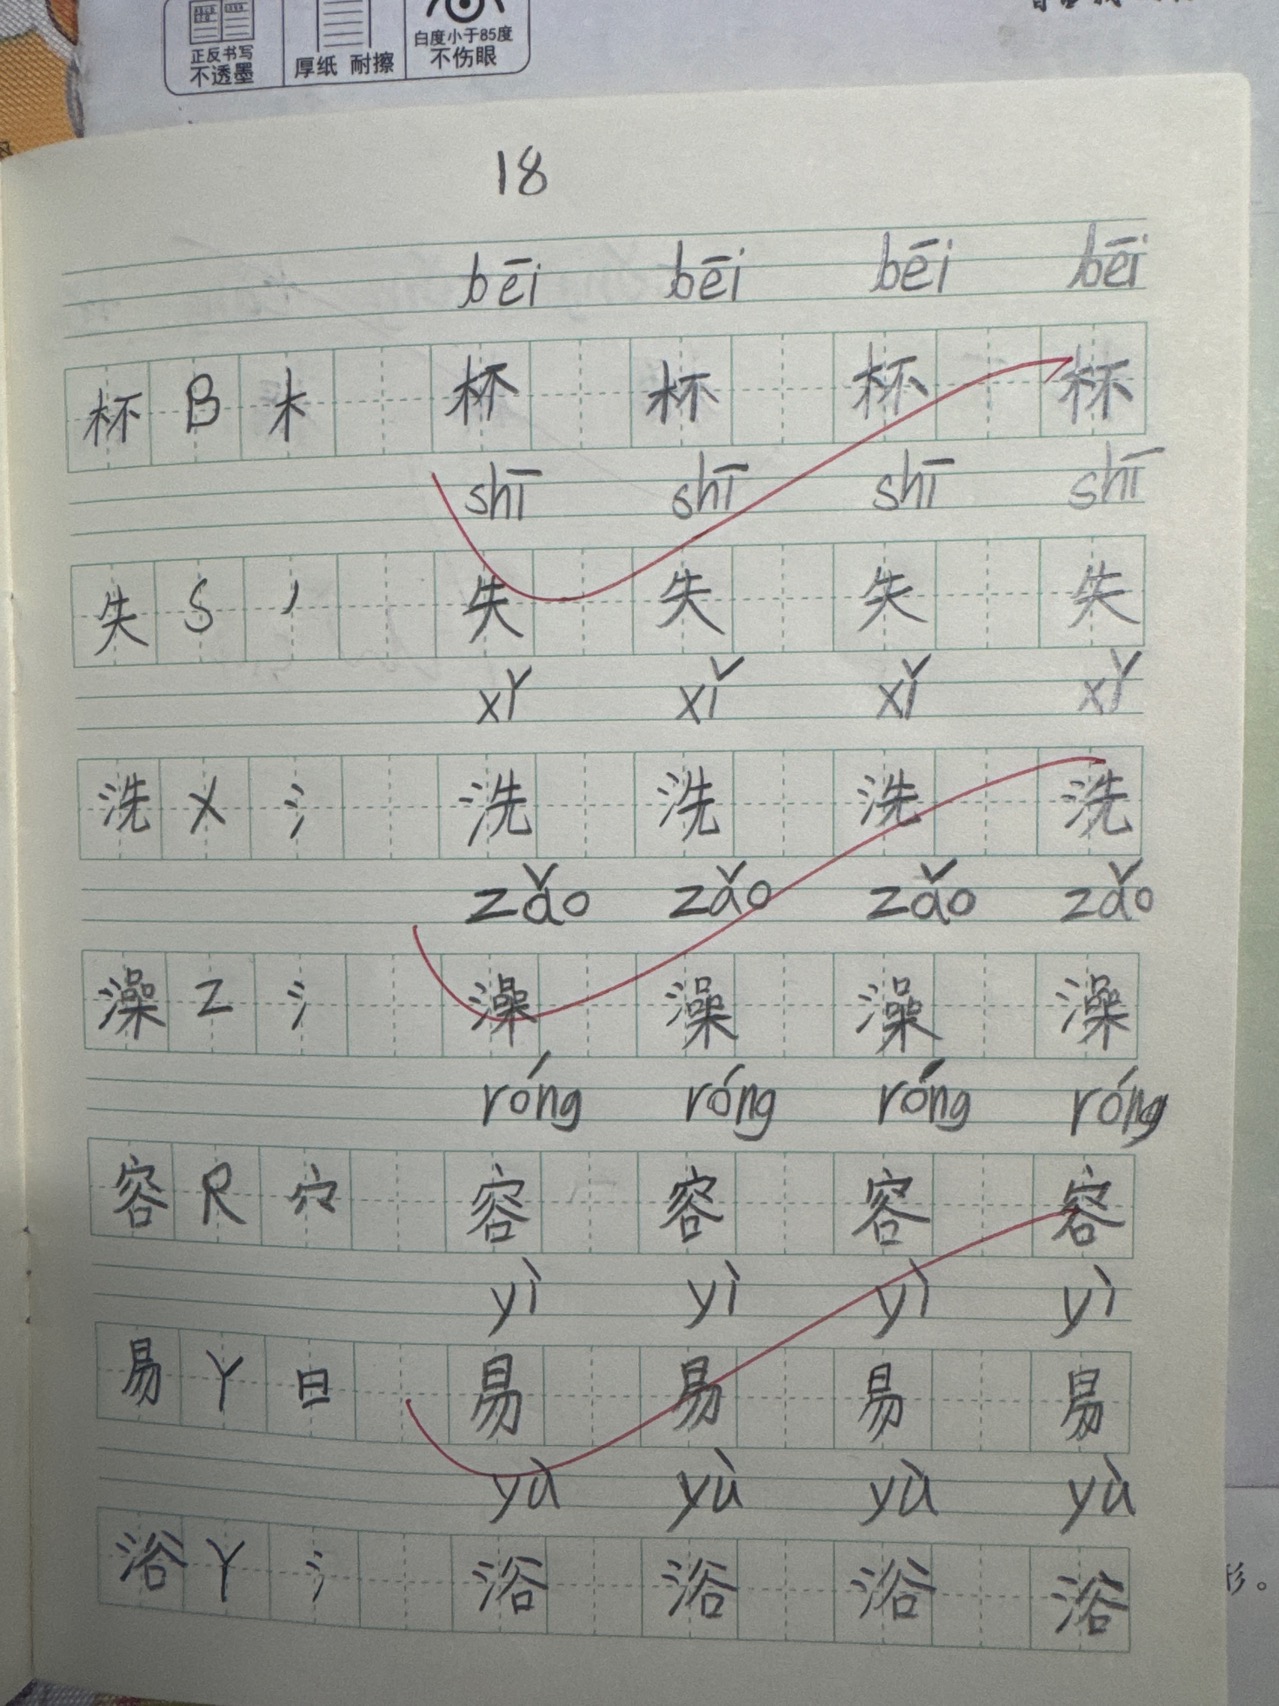 正反书写 不透墨
厚纸 耐擦
白度小于85度 不伤眼
18
bēi bēi bēi bēi
杯 B 木 杯 杯 杯 杯
shī shī shī shī
失 S 丿 失 失 失 失
xǐ xǐ xǐ xǐ
洗 X 氵 洗 洗 洗 洗
zǎo zǎo zǎo zǎo
澡 Z 氵 澡 澡 澡 澡
róng róng róng róng
容 R 穴 容 容 容 容
yì yì yì yì
易 Y 日 易 易 易 易
yù yù yù yù
浴 Y 氵 浴 浴 浴 浴
形。